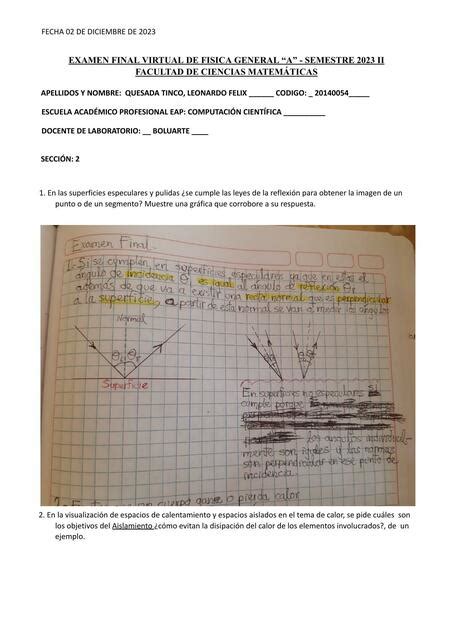 FECHA 02 DE DICIEMBRE DE 2023
EXAMEN FINAL VIRTUAL DE FISICA GENERAL “A” - SEMESTRE 2023 II
FACULTAD DE CIENCIAS MATEMÁTICAS
APELLIDOS Y NOMBRE: QUESADA TINCO, LEONARDO FELIX ______ CODIGO: _ 20140054_____
ESCUELA ACADÉMICO PROFESIONAL EAP: COMPUTACIÓN CIENTÍFICA __________
DOCENTE DE LABORATORIO: __ BOLUARTE ____
SECCIÓN: 2
1. En las superficies especulares y pulidas ¿se cumple las leyes de la reflexión para obtener la imagen de un
punto o de un segmento? Muestre una gráfica que corrobore a su respuesta.
Examen Final.
1.- Si se cumplen en superficies especulares ya que en estas el
ángulo de incidencia θi es igual al ángulo de reflexión θr
además de que va a existir una recta normal que es perpendicular
a la superficie, a partir de esta normal se van a medir los ángulos
Normal
θi θr
Superficie
En superficies no especulares si
cumple porque
los angulos individual-
mente son iguales y las normas
son perpendicular en ese punto de
incidencia.
cuerpo gane o pierda calor
2. En la visualización de espacios de calentamiento y espacios aislados en el tema de calor, se pide cuáles son
los objetivos del Aislamiento ¿cómo evitan la disipación del calor de los elementos involucrados?, de un
ejemplo.